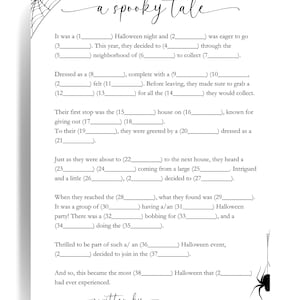 a spooky tale
It was a (1________) Halloween night and (2________) was eager to go
(3________). This year, they decided to (4________) through the
(5________) neighborhood of (6________) to collect (7________).
Dressed as a (8________), complete with a (9________) (10________)
(2________) felt (11________). Before leaving, they made sure to grab a
(12________) (13________) for all the (14________) they would collect.
Their first stop was the (15________) house on (16________), known for
giving out (17________) (18________).
To their (19________), they were greeted by a (20________) dressed as a
(21________).
Just as they were about to (22________) to the next house, they heard a
(23________) (24________) coming from a large (25________). Intrigued
and a little (26________), (2________) decided to (27________).
When they reached the (28________), what they found was (29________).
It was a group of (30________) having a/an (31________) Halloween
party! There was a (32________) bobbing for (33________), and a
(34________) doing the (35________).
Thrilled to be part of such a/ an (36________) Halloween event,
(2________) decided to join in the (37________).
And so, this became the most (38________) Halloween that (2________)
had ever experienced.
written by